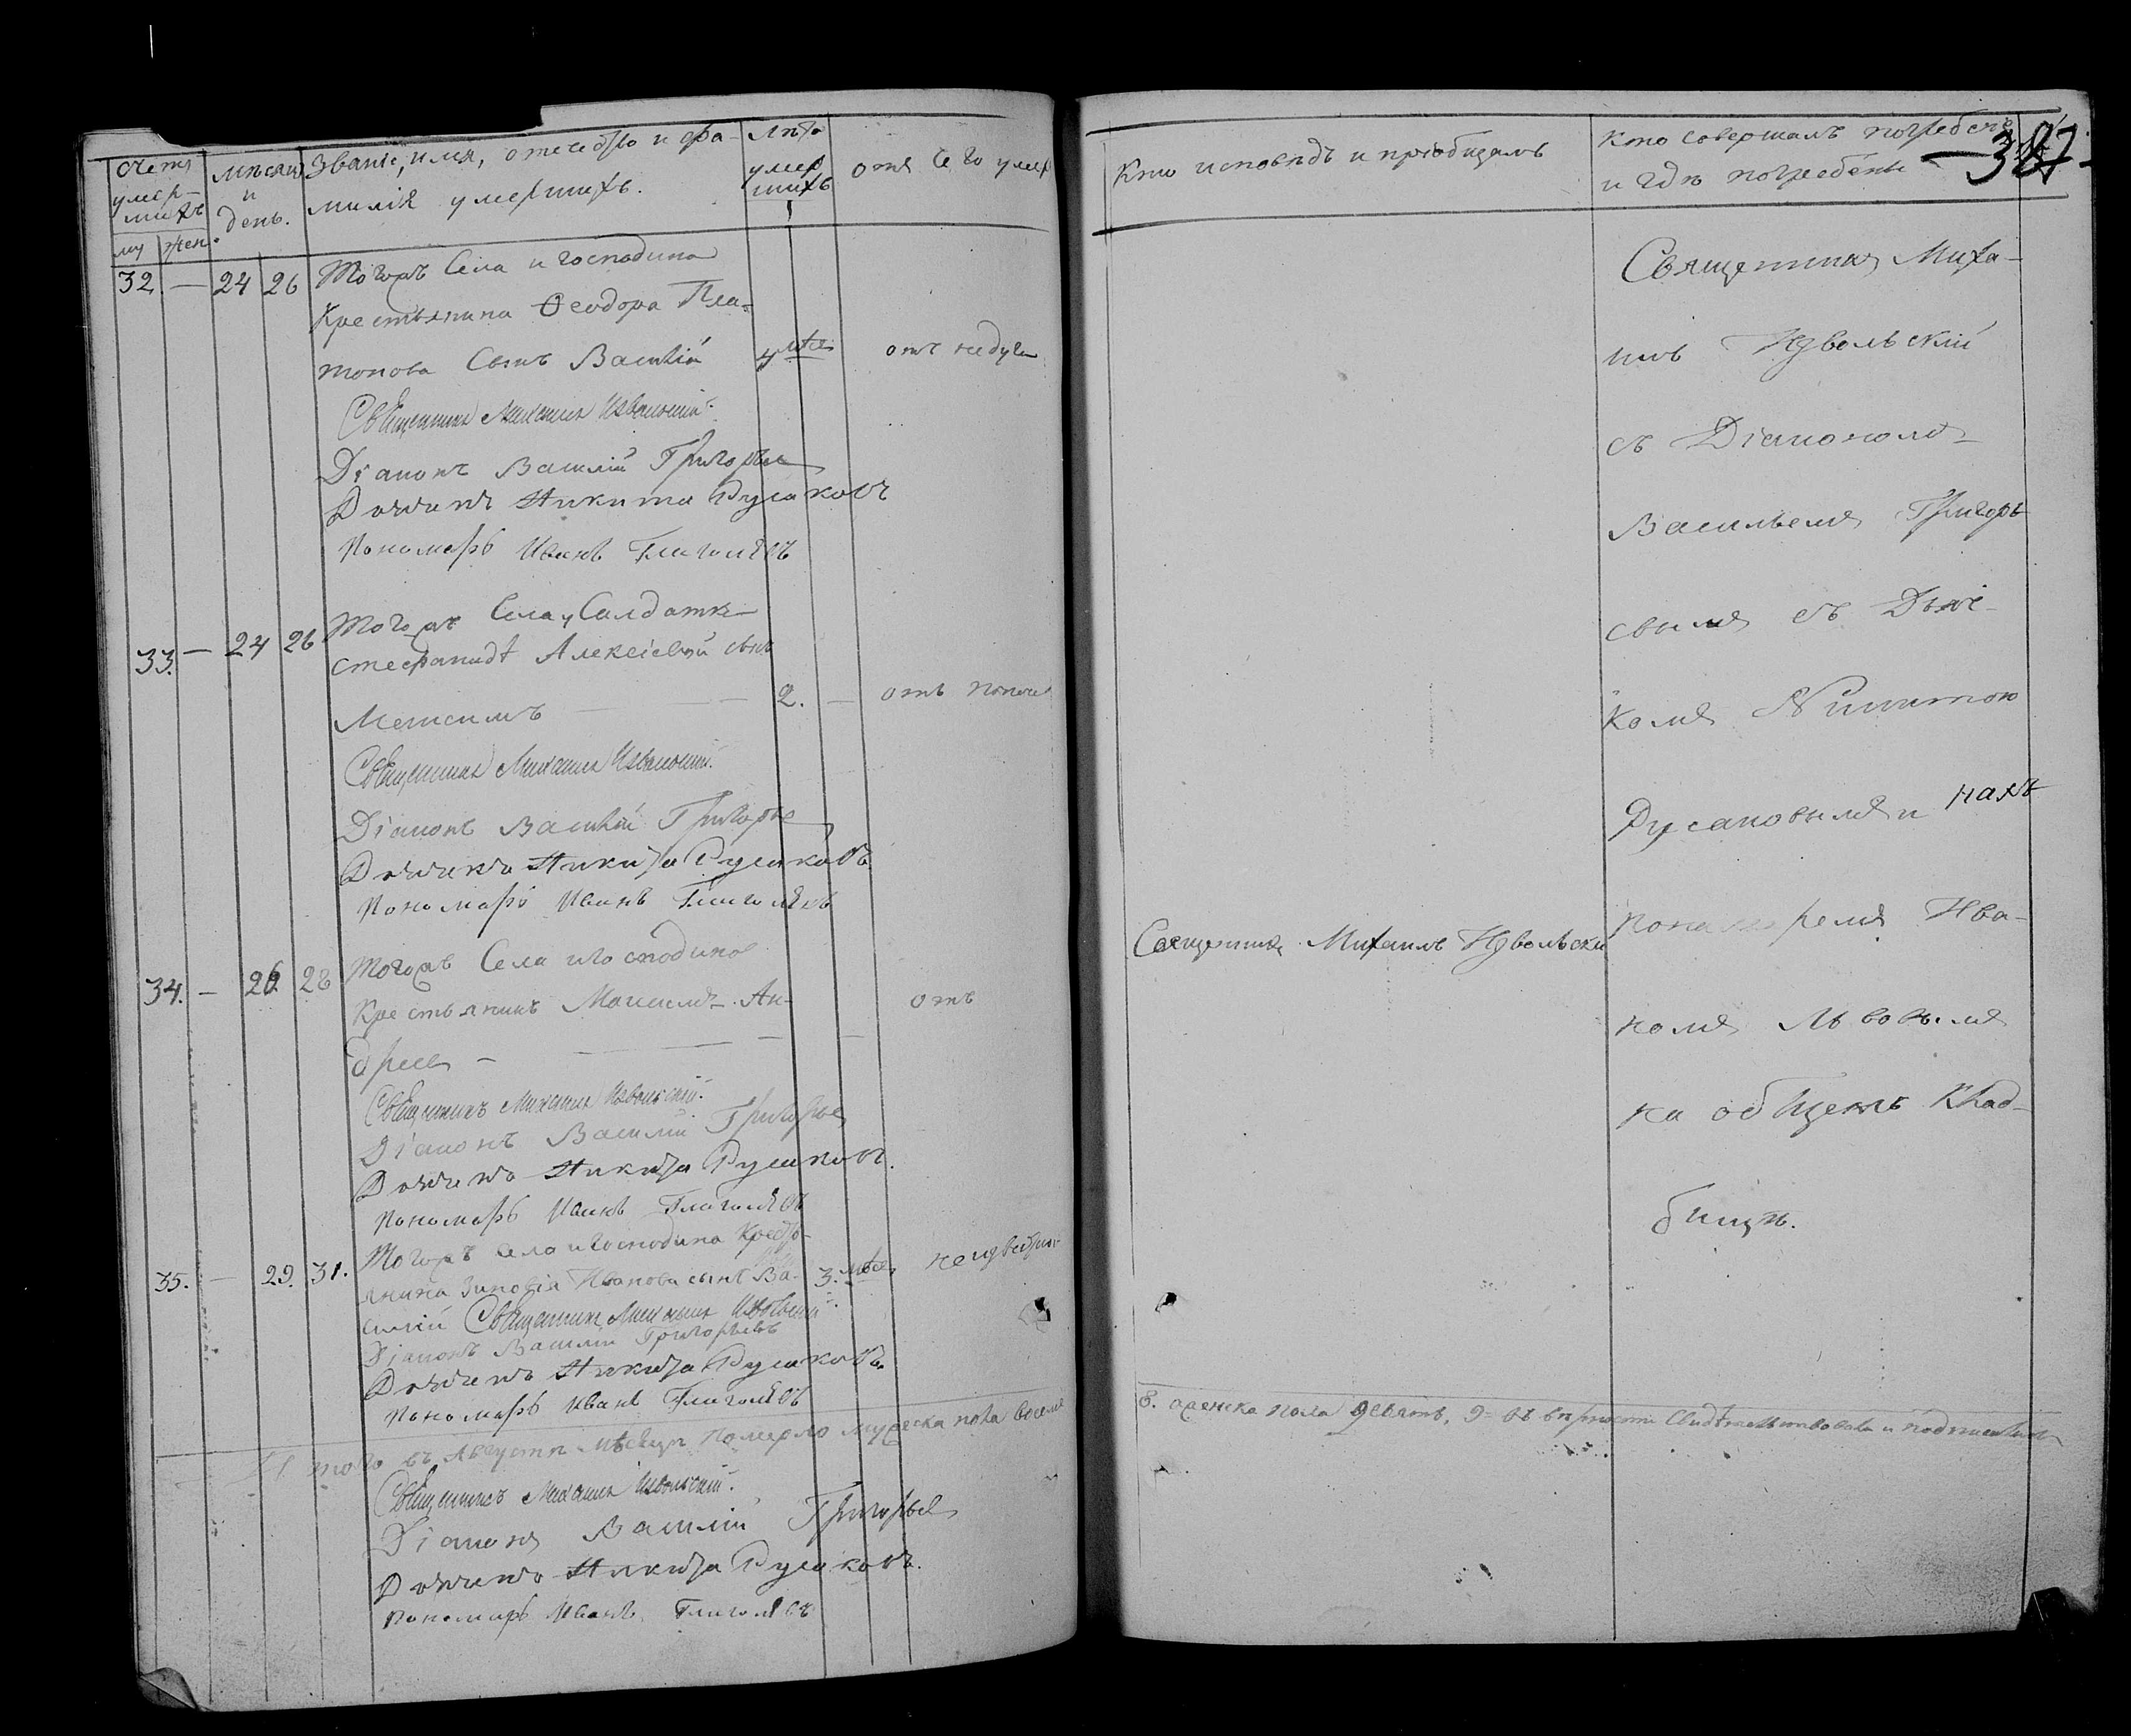 Счетъ умер-шихъ
му жен.
Мѣсяцъ и день.
Званіе, имя, отечество и фа-
милія умершихъ.
Лѣта умер шихъ
отъ чего умер
32. — 24 26 Тогожъ Села и господина
Крестьянина Ѳеодора Пла-
тонова Сынъ Василій 4 мѣся отъ недуга
Священникъ Михаилъ Извольскій.
Діаконъ Василій Григорьев
Дьячекъ Никита Русаковъ
Пономарь Иванъ
33. — 24 26 Тогожъ Села, Салдатке
Стефанидѣ Алексіевой сынъ
2. — отъ поноса
Священникъ Михаилъ Извольскій.
Діаконъ Василій Григорьев
Дьячекъ Никита Русаковъ
Пономарь Иванъ
34. — 26 28 Тогожъ Села и господина
Крестьянинъ Максимъ Ан-
дреев — отъ
Священникъ Михаилъ Извольскій.
Діаконъ Василій Григорьев
Дьячекъ Никита Русаковъ.
Пономарь Иванъ
35. — 29. 31. Тогожъ Села и господина Кресть-
янина Зиновія Иванова сынъ Ва- 3. мѣся неизвестно
силій Священникъ Михаилъ Извольскій.
Діаконъ Василій Григорьевъ
Дьячекъ Никита Русаковъ.
Пономарь Иванъ
Итого въ Августѣ мѣсяцѣ померло мужеска пола восемь
Священникъ Михаилъ Извольскій.
Діаконъ Василій Григорьев
Дьячекъ Никита Русаковъ.
Пономарь Иванъ
Кто исповѣдъ и пріобщалъ
Кто совершалъ погребеніе
и гдѣ погребены
387
Священникъ Миха-
илъ Извольскій
съ Діакономъ
Васильемъ Григорь
евымъ съ Дьяч-
комъ Никитою
Русаковымъ и
пономаремъ Ива-
номъ Львовымъ
на общемъ Клад-
бищѣ.
Священникъ Михаилъ Извольскій
8. женска пола девять, 9 въ вѣрности свидѣтельствовали и подписались